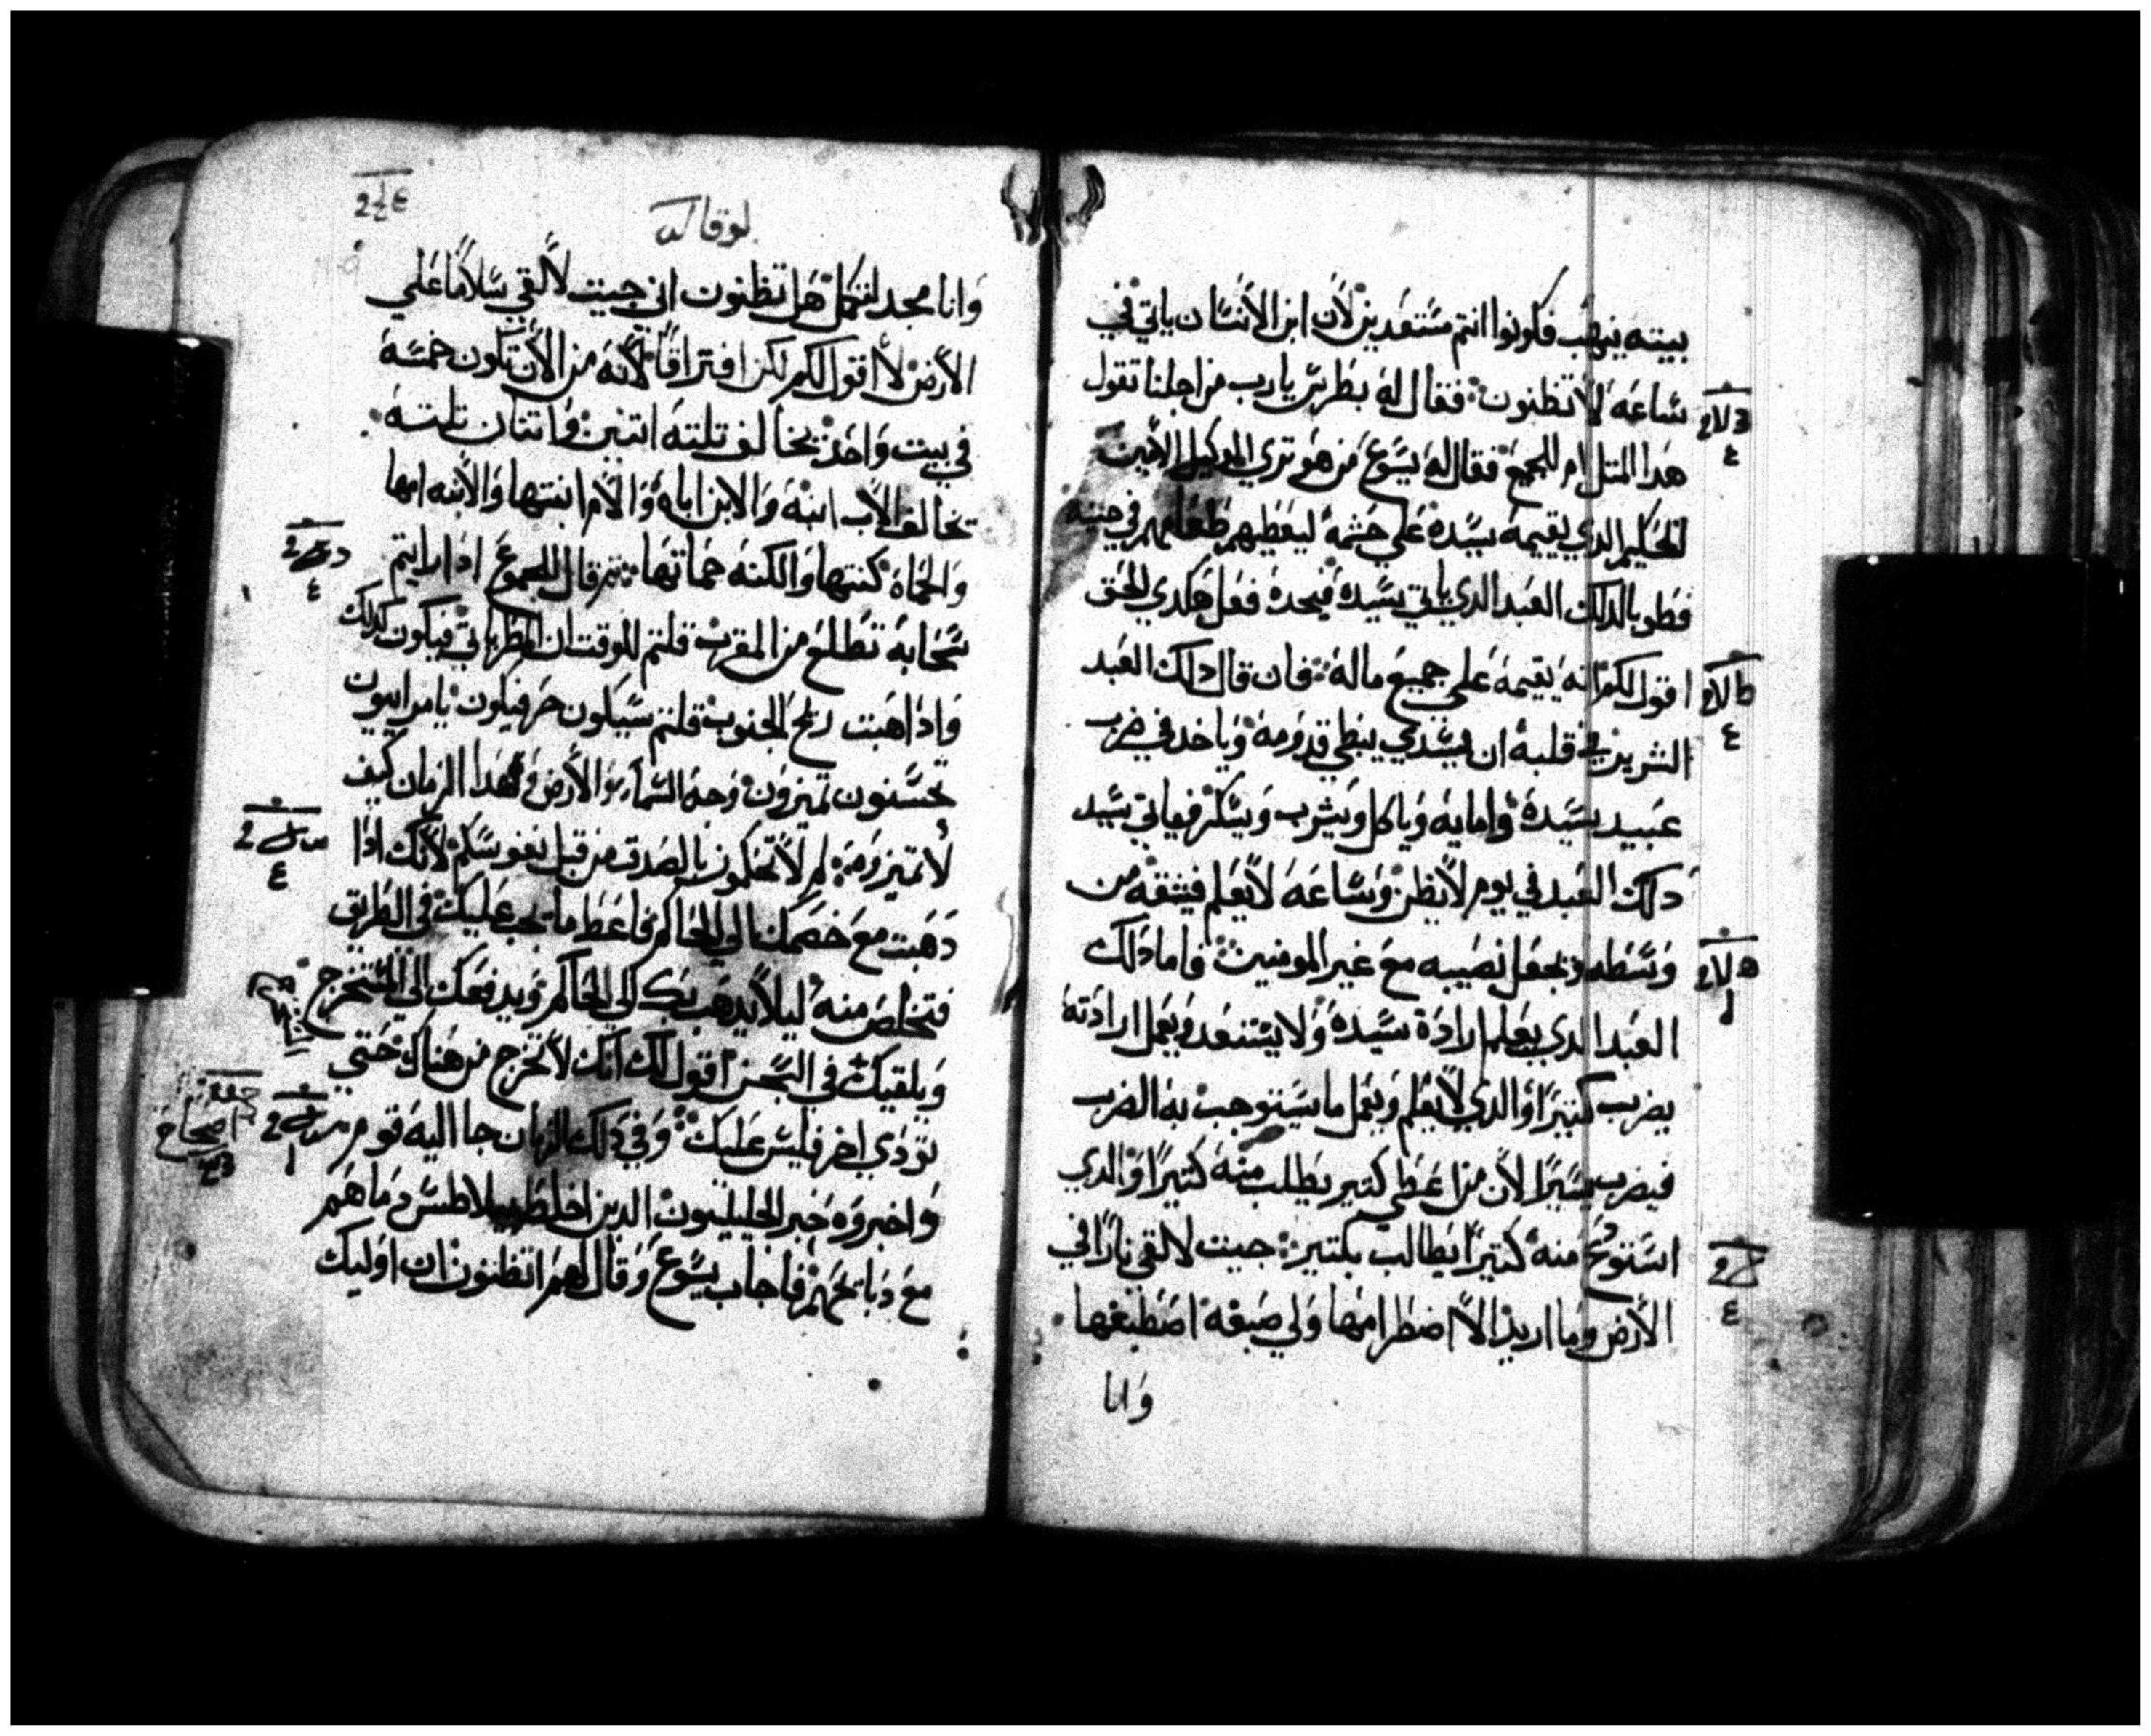 بيته ينهب فكونوا انتم مستعدين لأن ابن الأنسان ياتي في
ساعه لا تظنون فقال له بطرس يارب من اجلنا تقول
هدا المتل ام للجميع فقال له يسوع من هو تري الوكيل الأمين
الحكيم الدي يقيمه سيده علي حشمه ليعطيهم طعامهم في حينه
فطوبا لدلك العبد الدي ياتي سيده فيجده فعل هكدي الحق
اقول لكم انه يقيمه علي جميع ماله فان قال دلك العبد
الشرير في قلبه ان سيدي يبطي قدومه وياخد في ضرب
عبيد سيده وامايه وياكل ويشرب ويسكر فياتي سيد
دلك العبد في يوم لا يظن وساعه لا يعلم فيشقه من
وسطه ويجعل نصيبه مع غير المومنين فاما دلك
العبد الدي يعلم ارادة سيده ولا يستعد ويعمل ارادته
يضرب كتيرًا والدي لا يعلم ويعمل ما يستوجب به الضرب
فيضرب يسيرًا لأن من اعطي كتير يطلب منه كتيرًا والدي
استودع منه كتيرًا يطالب بكتير جيت لالقي نارًا في
الأرض وما اريد الا اضطرامها ولي صبغه اصطبغها
وانا
لوقا
وانا مجد لتكمل هل تظنون اني جيت لألقي سلامًا علي
الأرض لا اقول لكم لكن افتراقًا لأنه من الأن تكون خمسه
في بيت واحد يخالف تلته اتنين واتنان تلته
تخالف الأب ابنه والابن اباه والأم ابنتها والأبنه امها
والحماه كنتها والكنه حماتها ثم قال للجموع ادا رايتم
سحابه تطلع من المغرب قلتم للوقت ان المطر ياتي فيكون كدلك
وادا هبت ريح الجنوب قلتم سيكون حر فيكون يا مراييون
تحسنون تميزون وجه السماء والأرض وهدا الزمان كيف
لا تميزونه لم لا تحكمون بالصدق من قبل نفوسكم لأنك ادا
دهبت مع خصمك الي الحاكم فاعط ما يجب عليك في الطريق
فتخلص منه ليلا يدهب بك الي الحاكم ويدفعك الي المستخرج
ويلقيك في السجن اقول لك انك لا تخرج من هناك حتي
تودي اخر فليس عليك وفي دلك الزمان جا اليه قوم
اصحاح
واخبروه خبر الجليليون الدين اخلط بيلاطس دماهم
مع دباتحهم فاجاب يسوع وقال لهم اتظنون ان اوليك